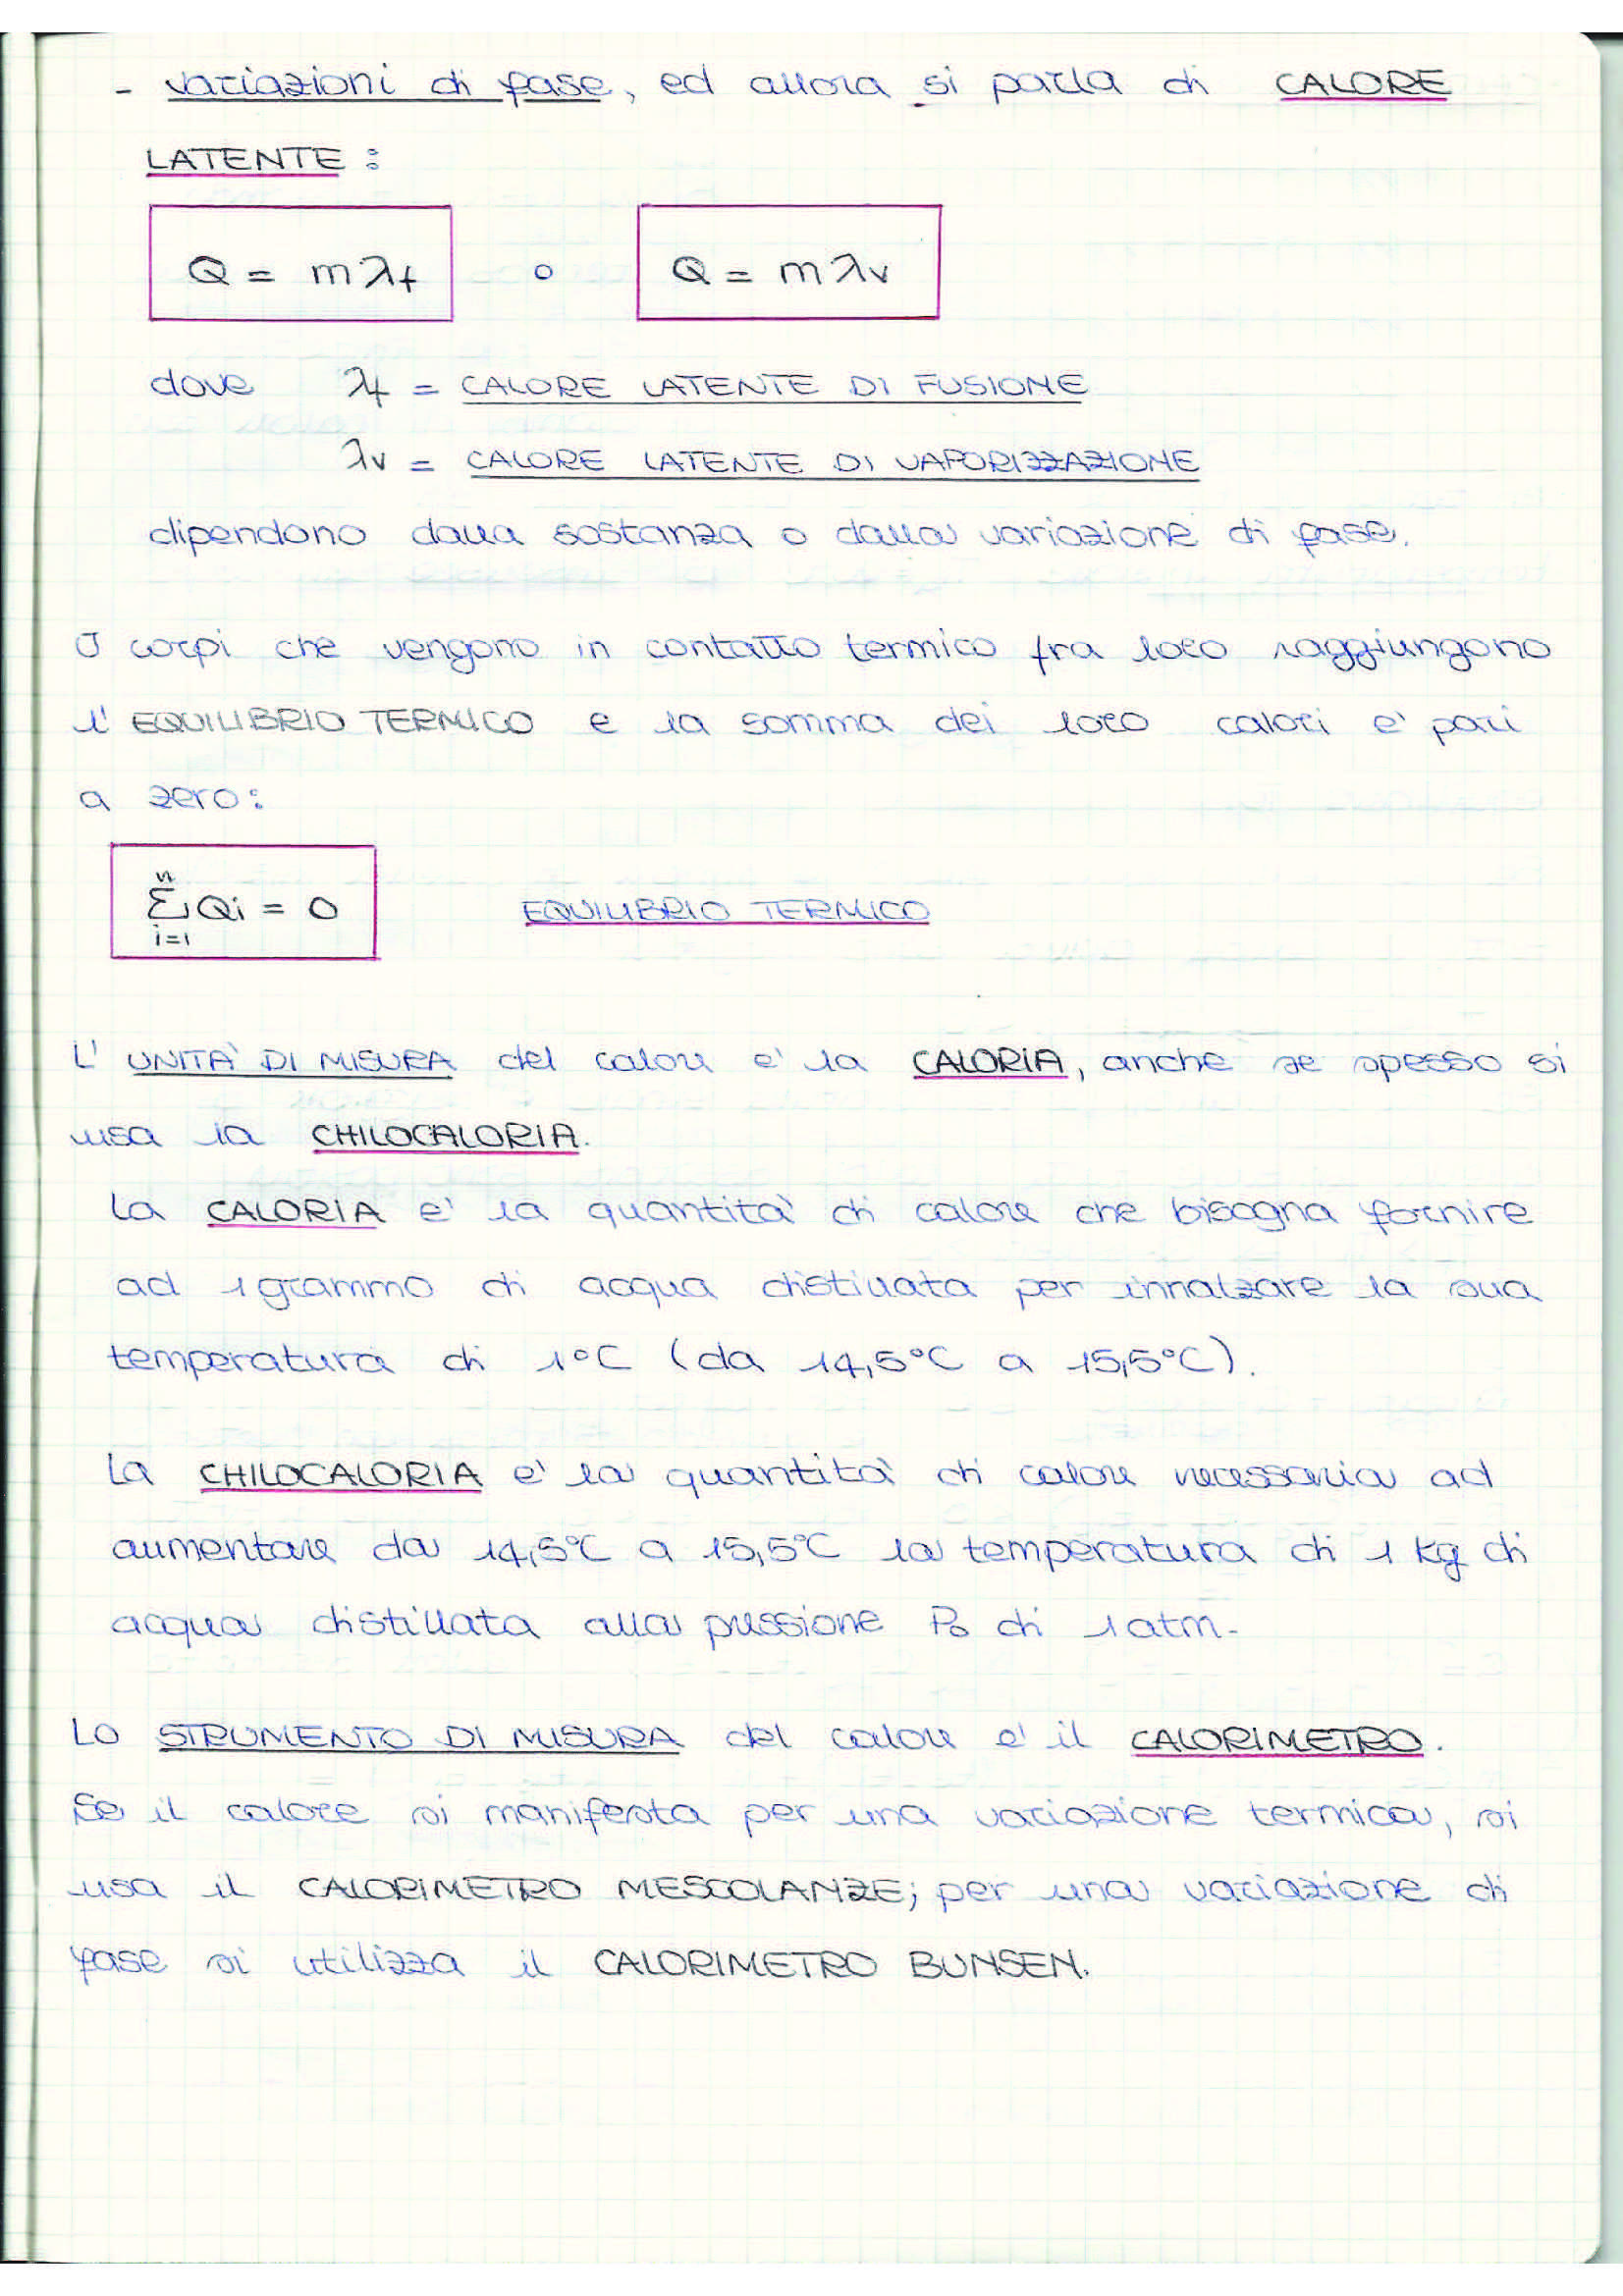 - variazioni di fase, ed allora si parla di CALORE
LATENTE :
Q = mλf o Q = mλv
dove λf = CALORE LATENTE DI FUSIONE
λv = CALORE LATENTE DI VAPORIZZAZIONE
dipendono dalla sostanza o dalla variazione di fase.
I corpi che vengono in contatto termico fra loro raggiungono
l' EQUILIBRIO TERMICO e la somma dei loro calori e' pari
a zero:
n
Σ Qi = 0 EQUILIBRIO TERMICO
i=1
L' UNITA' DI MISURA del calore e' la CALORIA, anche se spesso si
usa la CHILOCALORIA.
La CALORIA e' la quantita' di calore che bisogna fornire
ad 1 grammo di acqua distillata per innalzare la sua
temperatura di 1°C (da 14,5°C a 15,5°C).
La CHILOCALORIA e' la quantita' di calore necessaria ad
aumentare da 14,5°C a 15,5°C la temperatura di 1 kg di
acqua distillata alla pressione Po di 1 atm.
Lo STRUMENTO DI MISURA del calore e' il CALORIMETRO.
Se il calore si manifesta per una variazione termica, si
usa il CALORIMETRO MESCOLANZE; per una variazione di
fase si utilizza il CALORIMETRO BUNSEN.